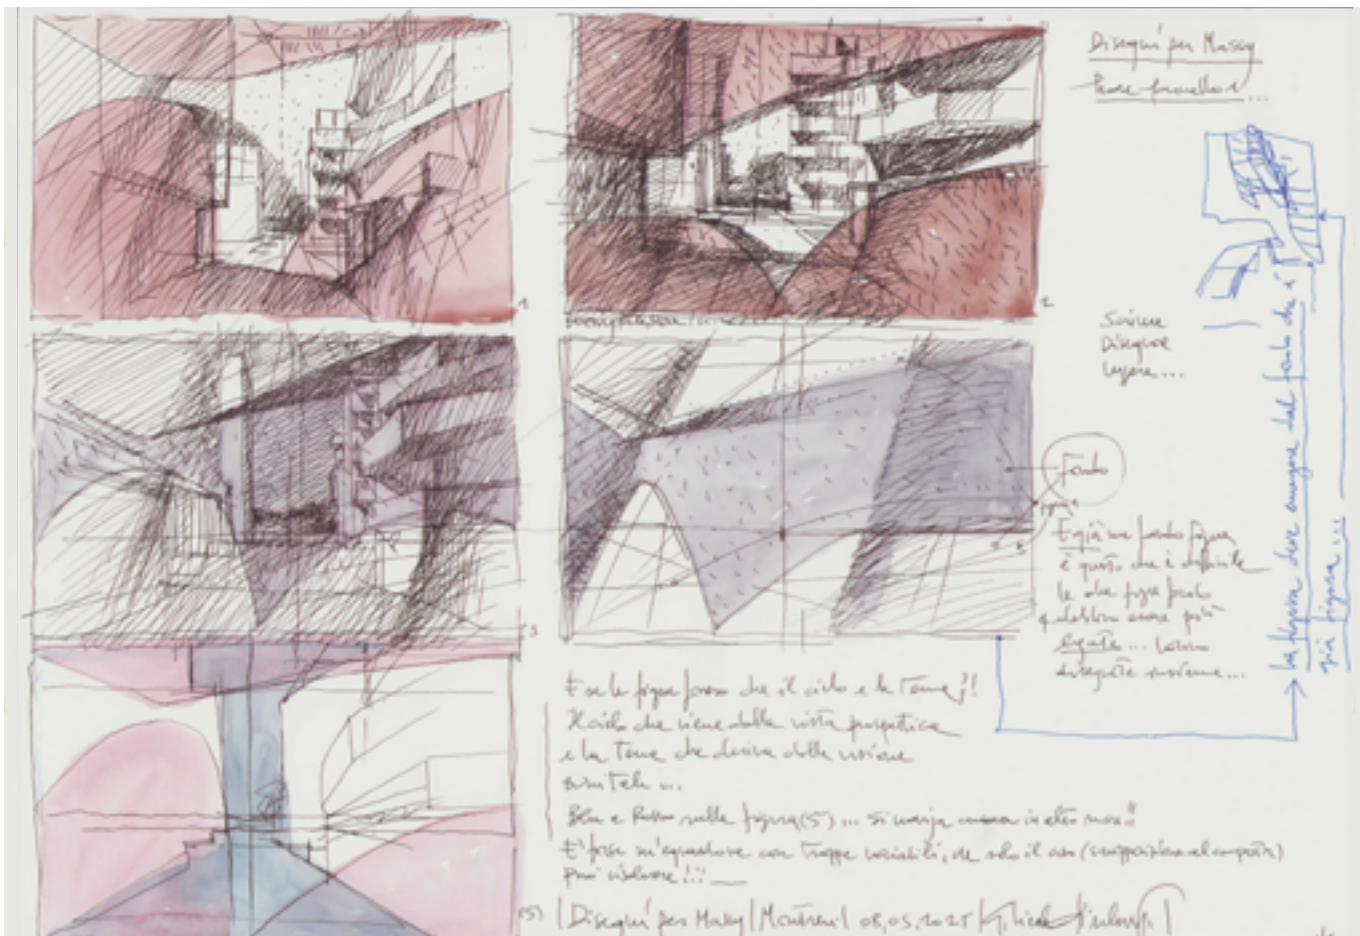 Disegni per Massy
1
2
Scrivere
Disegnare
leggere...
Fondo
E già un fondo figura
è questo che è difficile
le due figure fondo
debbono essere più
legate... vanno
disegnate insieme...
La figura deve emergere dal fondo che è
già figura...
3
4
E se le figure fossero che il cielo e la Terra?!
Il cielo che viene dalla vista prospettica
e la Terra che deriva dalla visione
...
Blu e Rosso nella figura (5) ... si in altro
E' forse un'equazione con troppe variabili, che solo il caso
può risolvere!!!
(5) | Disegni per Massy | Montreuil 08,05,2025 |